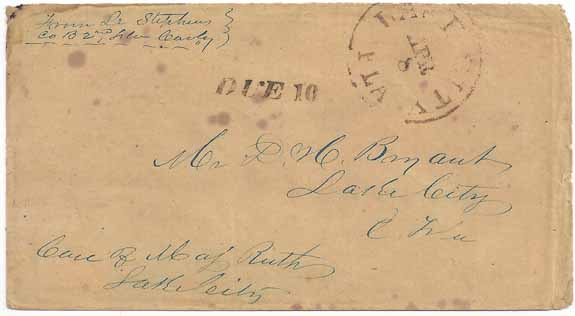 From Lt Stephens
Co B 2nd Fla Cavly
LAKE CITY
APR
8
FLA
DUE 10
Mr D. H. Bryant
Lake City
Care of Maj Ruth
Lake City